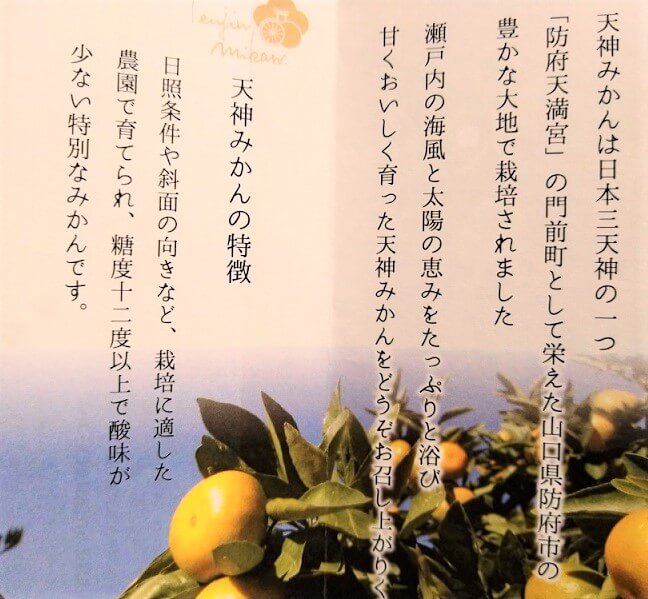 天神みかんは日本三天神の一つ
「防府天満宮」の門前町として栄えた山口県防府市の
豊かな大地で栽培されました
瀬戸内の海風と太陽の恵みをたっぷりと浴び
甘くおいしく育った天神みかんをどうぞお召し上がりく
Tenjin
mikan
天神みかんの特徴
日照条件や斜面の向きなど、栽培に適した
農園で育てられ、糖度十二度以上で酸味が
少ない特別なみかんです。